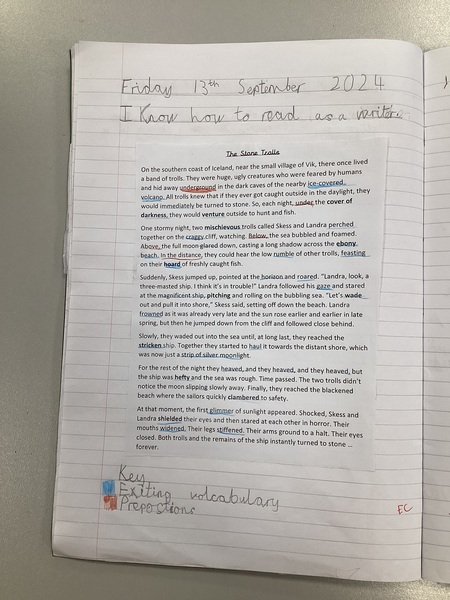 Friday 13th September 2024
I Know how to read as a writer.
The Stone Trolls
On the southern coast of Iceland, near the small village of Vik, there once lived
a band of trolls. They were huge, ugly creatures who were feared by humans
and hid away underground in the dark caves of the nearby ice-covered
volcano. All trolls knew that if they ever got caught outside in the daylight, they
would immediately be turned to stone. So, each night, under the cover of
darkness, they would venture outside to hunt and fish.
One stormy night, two mischievous trolls called Skess and Landra perched
together on the craggy cliff, watching. Below, the sea bubbled and foamed.
Above, the full moon glared down, casting a long shadow across the ebony
beach. In the distance, they could hear the low rumble of other trolls, feasting
on their hoard of freshly caught fish.
Suddenly, Skess jumped up, pointed at the horizon and roared. "Landra, look, a
three-masted ship. I think it's in trouble!" Landra followed his gaze and stared
at the magnificent ship, pitching and rolling on the bubbling sea. "Let's wade
out and pull it into shore," Skess said, setting off down the beach. Landra
frowned as it was already very late and the sun rose earlier and earlier in late
spring, but then he jumped down from the cliff and followed close behind.
Slowly, they waded out into the sea until, at long last, they reached the
stricken ship. Together they started to haul it towards the distant shore, which
was now just a strip of silver moonlight.
For the rest of the night they heaved, and they heaved, and they heaved, but
the ship was hefty and the sea was rough. Time passed. The two trolls didn't
notice the moon slipping slowly away. Finally, they reached the blackened
beach where the sailors quickly clambered to safety.
At that moment, the first glimmer of sunlight appeared. Shocked, Skess and
Landra shielded their eyes and then stared at each other in horror. Their
mouths widened. Their legs stiffened. Their arms ground to a halt. Their eyes
closed. Both trolls and the remains of the ship instantly turned to stone ...
forever.
Key
Exiting volcabulary
Prepostions
EC